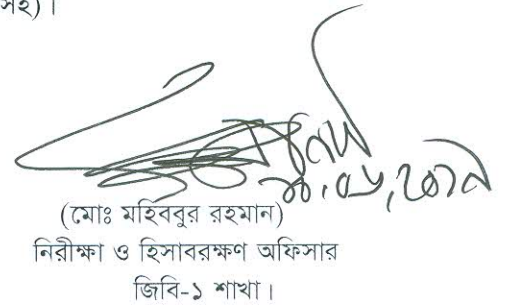 সহ)।
(মোঃ মহিববুর রহমান)
নিরীক্ষা ও হিসাবরক্ষণ অফিসার
জিবি-১ শাখা।